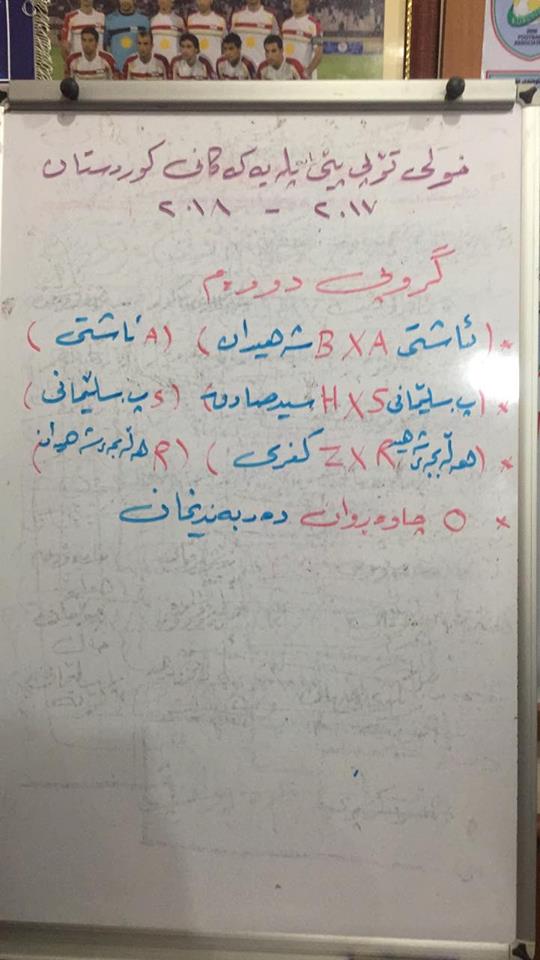 خولی تۆپی پێی پلە یەکەکانی کوردستان
٢٠١٧ - ٢٠١٨
گروپی دووەم
* (ئاشتی A X B شەهیدان) (A ئاشتی)
* (پ.سلێمانی S X H سیدصادق) (S پ.سلێمانی)
* (هەڵەبجەی شەهید R X Z کفری) (R هەڵەبجەی شەهیدان)
* O چاوەڕوان دەربەندیخان